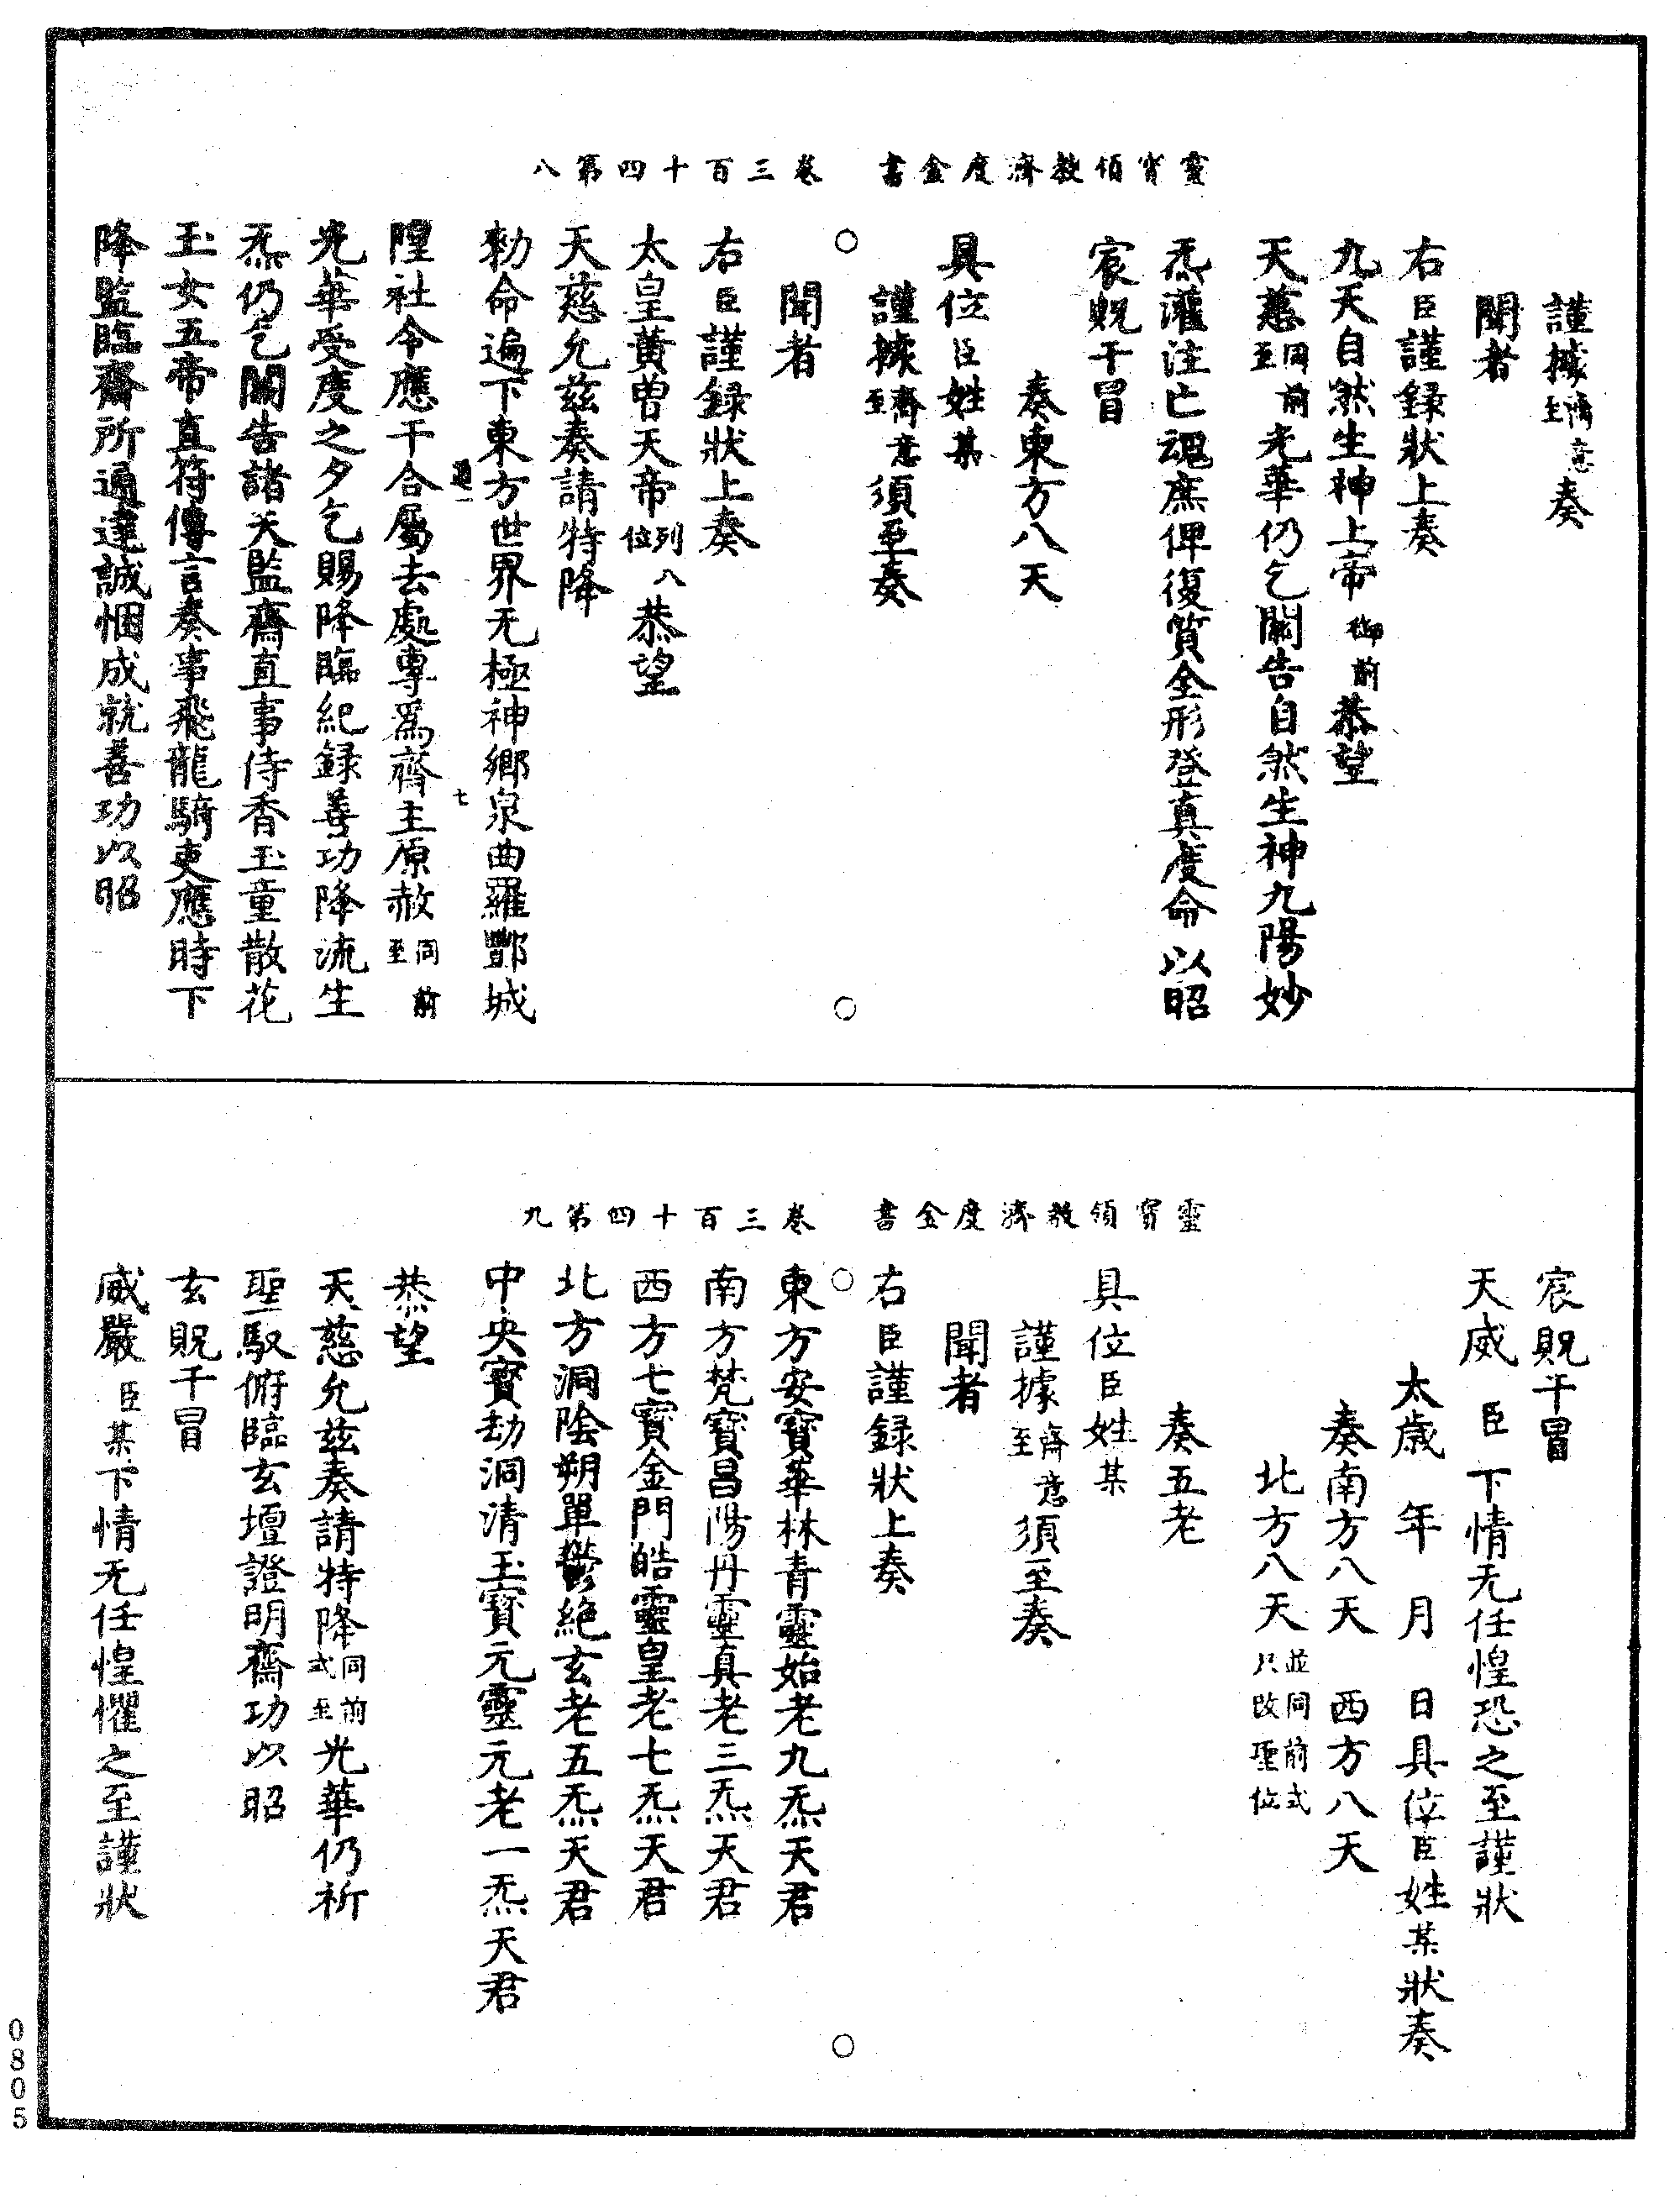 靈寶領教濟度金書　卷三百十四第八
謹據齋意至奏
聞者
右臣謹録狀上奏
九天自然生神上帝御前恭望
天慈同前至光華仍乞關告自然生神九陽妙
炁灌注亡魂庶俾復質全形登真度命以昭
宸貺干冒
奏東方八天
具位臣姓某
謹據齋意至須至奏
聞者
右臣謹録狀上奏
太皇黄曾天帝列八位恭望
天慈允兹奏請特降
勑命遍下東方世界无極神鄉泉曲羅酆城
通一　七
隍社令應干合屬去處專爲齋主原赦同前至
光華受度之夕乞賜降臨紀録善功降流生
炁仍乞關告諸天監齋直事侍香玉童散花
玉女五帝直符傳言奏事飛龍騎吏應時下
降監臨齋所通達誠悃成就善功以昭
靈寶領教濟度金書　卷三百十四第九
宸貺干冒
天威臣下情无任惶恐之至謹狀
太歲　年　月　日具位臣姓某狀奏
奏南方八天　西方八天
北方八天並同前式只改聖位
奏五老
具位臣姓某
謹據齋意至須至奏
聞者
右臣謹録狀上奏
東方安寶華林青靈始老九炁天君
南方梵寶昌陽丹靈真老三炁天君
西方七寶金門皓靈皇老七炁天君
北方洞陰朔單鬱絶玄老五炁天君
中央寶劫洞清玉寶元靈元老一炁天君
恭望
天慈允兹奏請特降同前式至光華仍祈
聖馭俯臨玄壇證明齋功以昭
玄貺干冒
威嚴臣某下情无任惶懼之至謹狀
0805